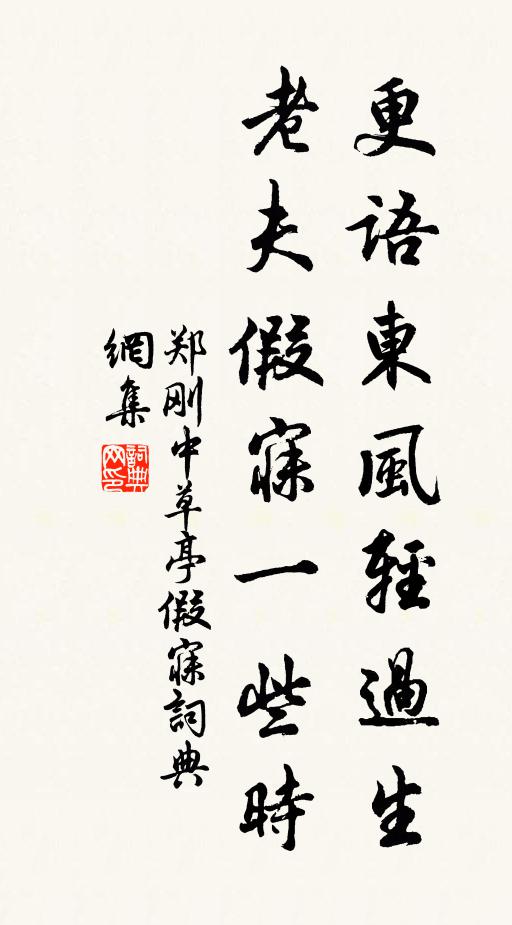 更語東風輕過生
老夫假寐一些時
郑刚中草亭假寐詞典
網集
詞典网印